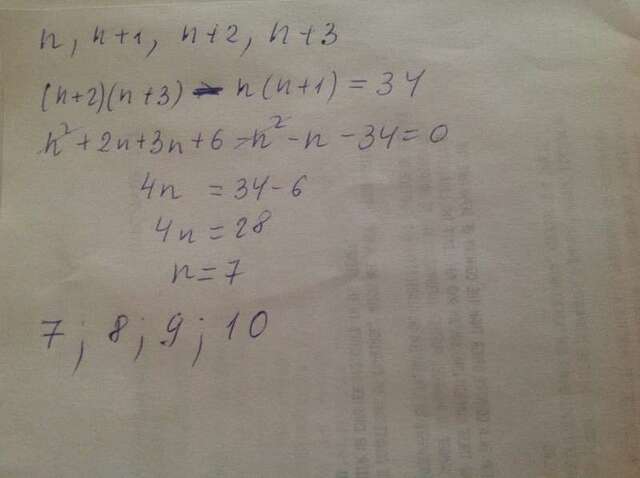 n, n+1, n+2, n+3
(n+2)(n+3) - n(n+1) = 34
n²+2n+3n+6-n²-n-34=0
4n = 34-6
4n = 28
n=7
7; 8; 9; 10